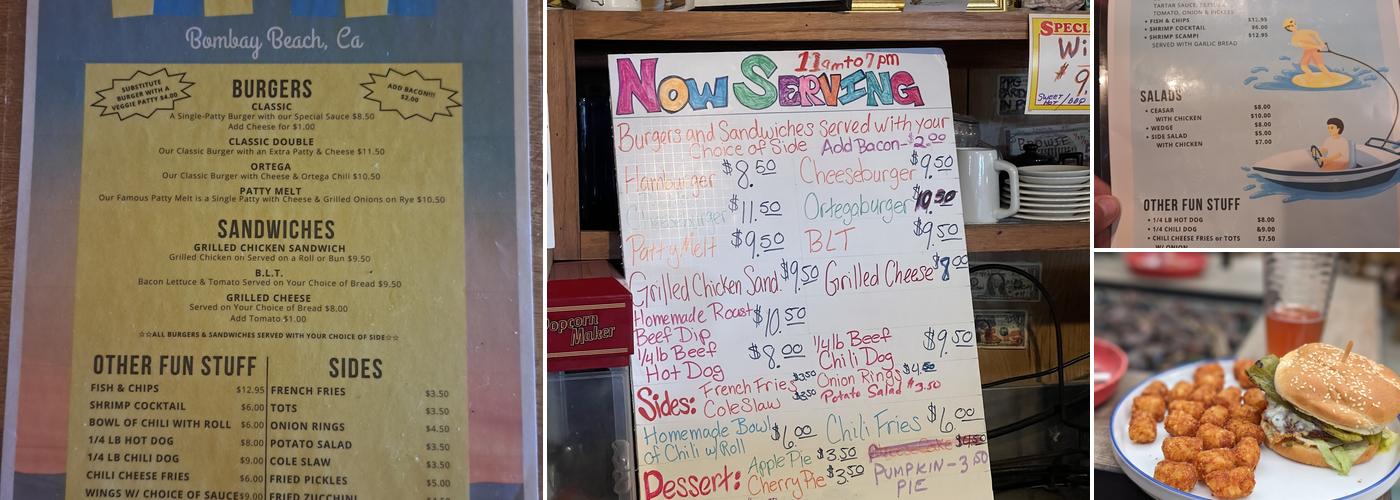 Bombay Beach, Ca
SUBSTITUTE
BURGER WITH A
VEGGIE PATTY $4.00
ADD BACON!!!
$2.00
BURGERS
CLASSIC
A Single-Patty Burger with our Special Sauce $8.50
Add Cheese for $1.00
CLASSIC DOUBLE
Our Classic Burger with an Extra Patty & Cheese $11.50
ORTEGA
Our Classic Burger with Cheese & Ortega Chili $10.50
PATTY MELT
Our Famous Patty Melt is a Single Patty with Cheese & Grilled Onions on Rye $10.50
SANDWICHES
GRILLED CHICKEN SANDWICH
Grilled Chicken on Served on a Roll or Bun $9.50
B.L.T.
Bacon Lettuce & Tomato Served on Your Choice of Bread $9.50
GRILLED CHEESE
Served on Your Choice of Bread $8.00
Add Tomato $1.00
☆☆ALL BURGERS & SANDWICHES SERVED WITH YOUR CHOICE OF SIDE☆☆
OTHER FUN STUFF
FISH & CHIPS $12.95
SHRIMP COCKTAIL $6.00
BOWL OF CHILI WITH ROLL $6.00
1/4 LB HOT DOG $8.00
1/4 LB CHILI DOG $9.00
CHILI CHEESE FRIES $6.00
WINGS W/ CHOICE OF SAUCE $9.00
SIDES
FRENCH FRIES $3.50
TOTS $3.50
ONION RINGS $4.50
POTATO SALAD $3.50
COLE SLAW $3.50
FRIED PICKLES $5.00
FRIED ZUCCHINI
11am to 7pm
NOW SERVING
Burgers and Sandwiches Served with your
Choice of Side Add Bacon-$2.00
Hamburger $8.50 Cheeseburger $9.50
$11.50 Ortegaburger 10.50
Patty Melt $9.50 BLT $9.50
Grilled Chicken Sand. $9.50 Grilled Cheese $8.00
Homemade Roast
Beef Dip $10.50
1/4 lb Beef
Hot Dog $8.00
1/4 lb Beef
Chili Dog $9.50
Sides: French Fries $3.50 Onion Rings $4.50
Cole Slaw $3.50 Potato Salad $3.50
Homemade Bowl
of Chili w/Roll $6.00 Chili Fries $6.00
Dessert: Apple Pie $3.50
Cherry Pie $3.50
PUMPKIN-3.50
PIE
Popcorn
Maker
SPECI
Wi
$9
SWEET
HOT/
TARTAR SAUCE,
TOMATO, ONION & PICKLES
• FISH & CHIPS $12.95
• SHRIMP COCKTAIL $6.00
• SHRIMP SCAMPI $12.95
SERVED WITH GARLIC BREAD
SALADS
• CEASAR $8.00
WITH CHICKEN $10.00
• WEDGE $8.00
• SIDE SALAD $5.00
WITH CHICKEN $7.00
OTHER FUN STUFF
• 1/4 LB HOT DOG $8.00
• 1/4 CHILI DOG &9.00
• CHILI CHEESE FRIES or TOTS $7.50
W/ ONION